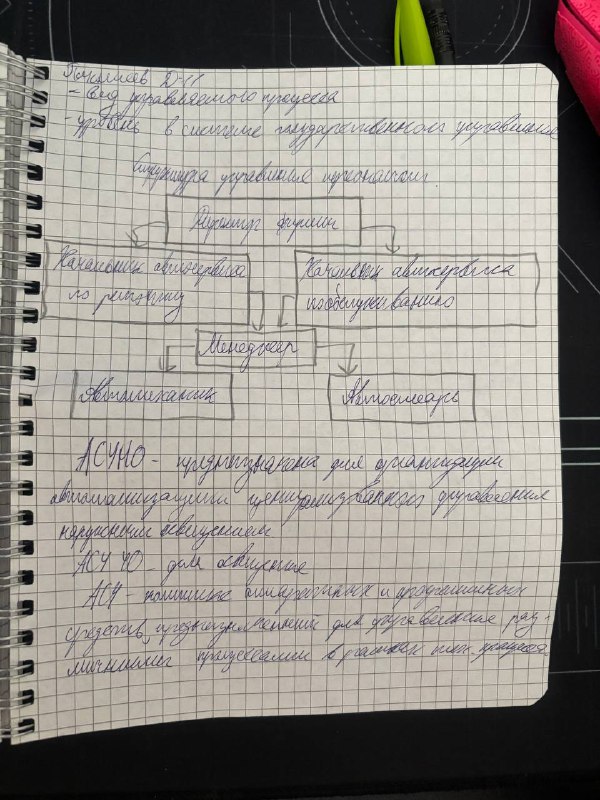 - вид управляемого процесса
- уровень в системе государственного управления
Структура управления персоналом
Директор фирмы
Начальник автосервиса
по ремонту
Начальник автосервиса
по обслуживанию
Менеджер
Автомеханик
Автослесарь
АСУНО - предназначена для организации
автоматизации централизованного управления
наружным освещением
АСУ НО - для освещения
АСУ - комплекс аппаратных и программных
средств, предназначенный для управления раз-
личными процессами в рамках тех. процесса